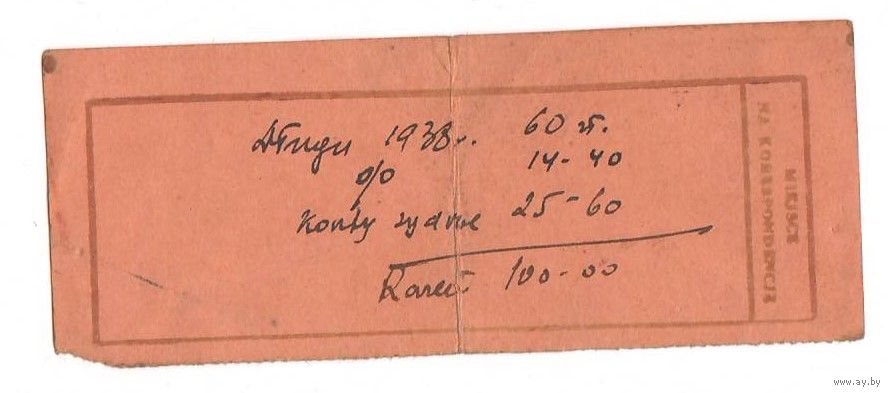 1938 r. 60 zł.
% 14-40
koszty sądowe 25-60
Razem 100-00
MIEJSCE
NA KORESPONDENCJE
www.ay.by